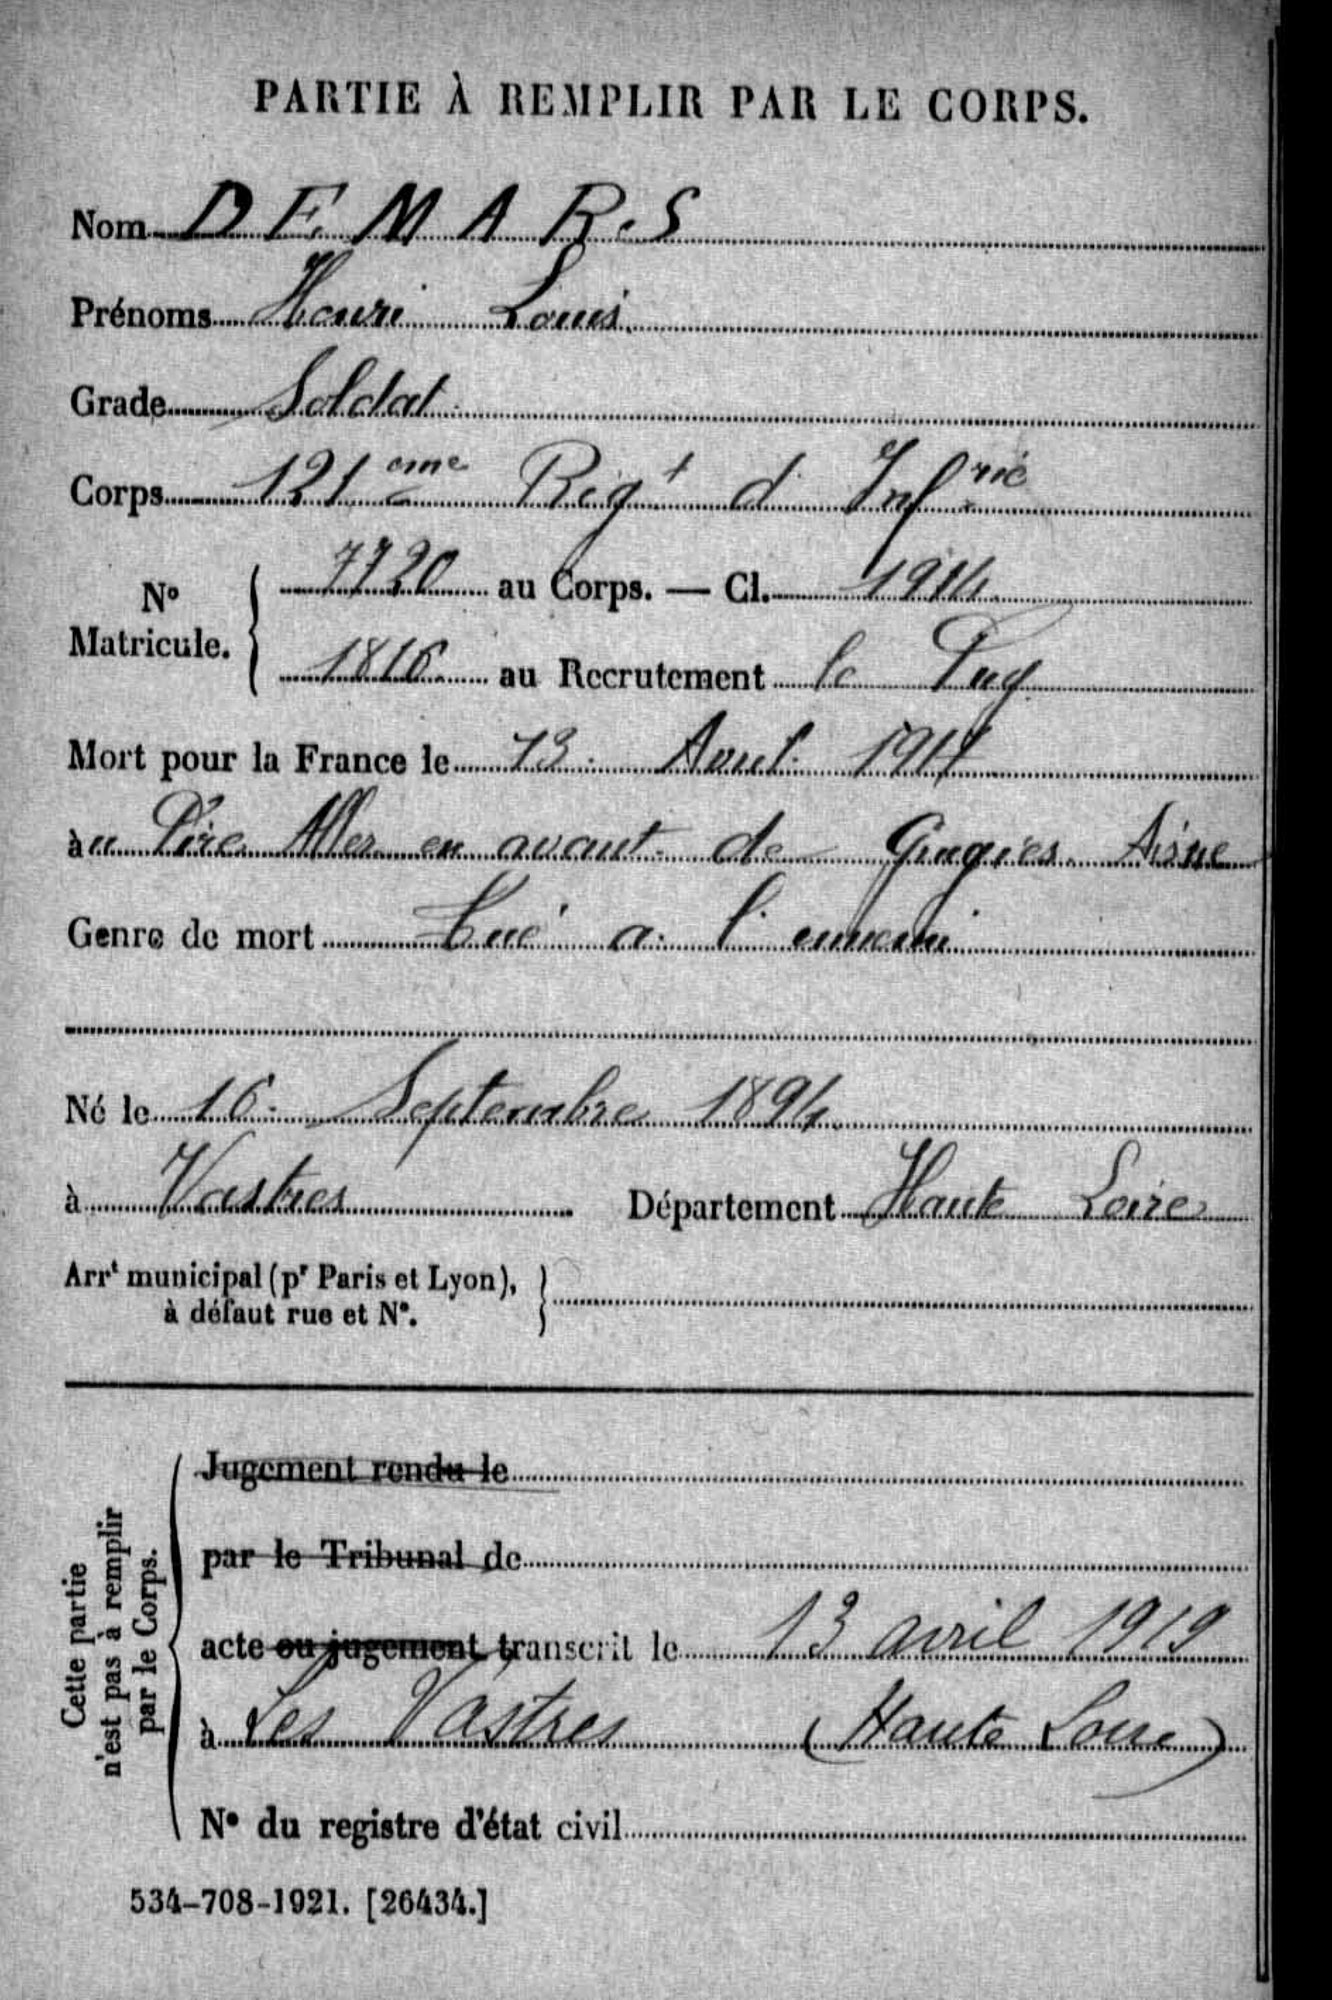 PARTIE À REMPLIR PAR LE CORPS.
Nom DEMARS
Prénoms Henri Louis
Grade Soldat
Corps 121ème Régt d'Infrie
No Matricule. 7720 au Corps. — Cl. 1914
1816 au Recrutement le Puy
Mort pour la France le 13 Avril 1917
au Pire Aller en avant de Grugies Aisne
Genre de mort Tué a l'ennemi
Né le 16 Septembre 1894
à Vastres Département Haute Loire
Arrt municipal (pr Paris et Lyon),
à défaut rue et No.
Cette partie
n'est pas à remplir
par le Corps.
Jugement rendu le
par le Tribunal de
acte ou jugement transcrit le 13 avril 1919
à Les Vastres (Haute Loire)
No du registre d'état civil
534-708-1921. [26434.]